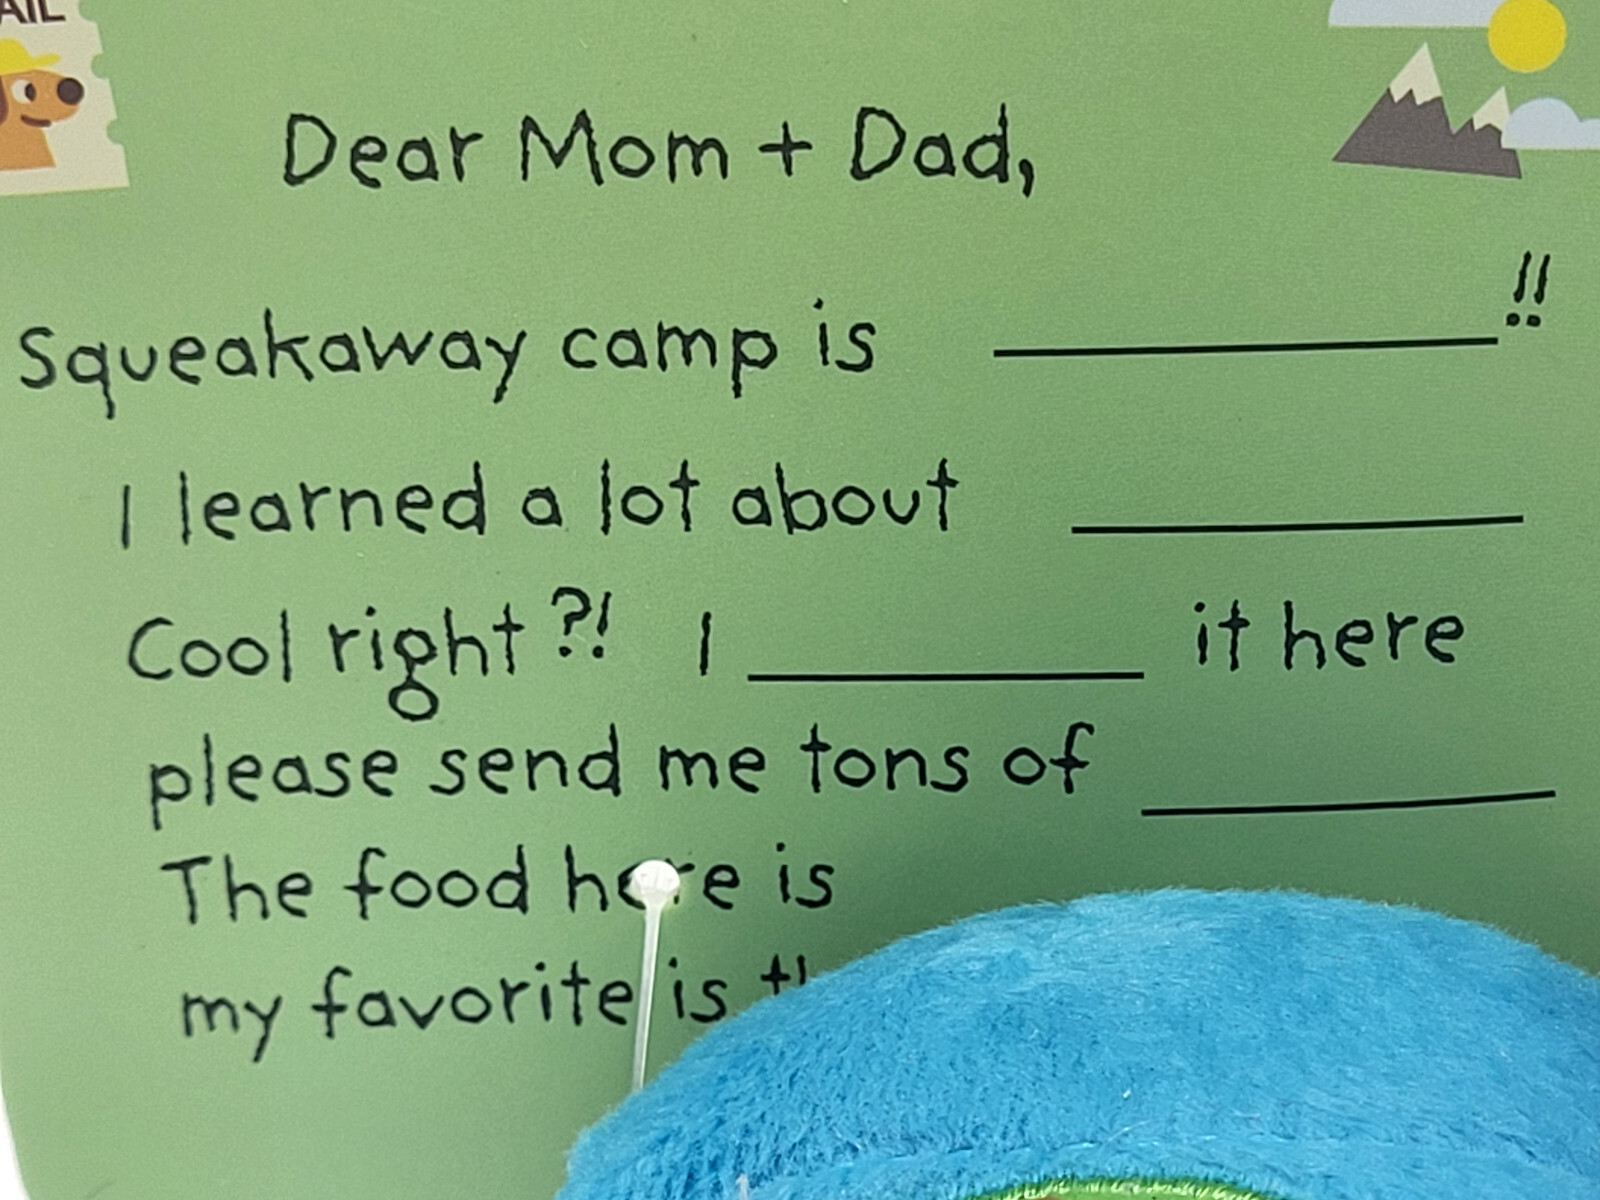 AIL
Dear Mom + Dad,
Squeakaway camp is __________!!
I learned a lot about __________
Cool right?! I __________ it here
please send me tons of __________
The food here is
my favorite is